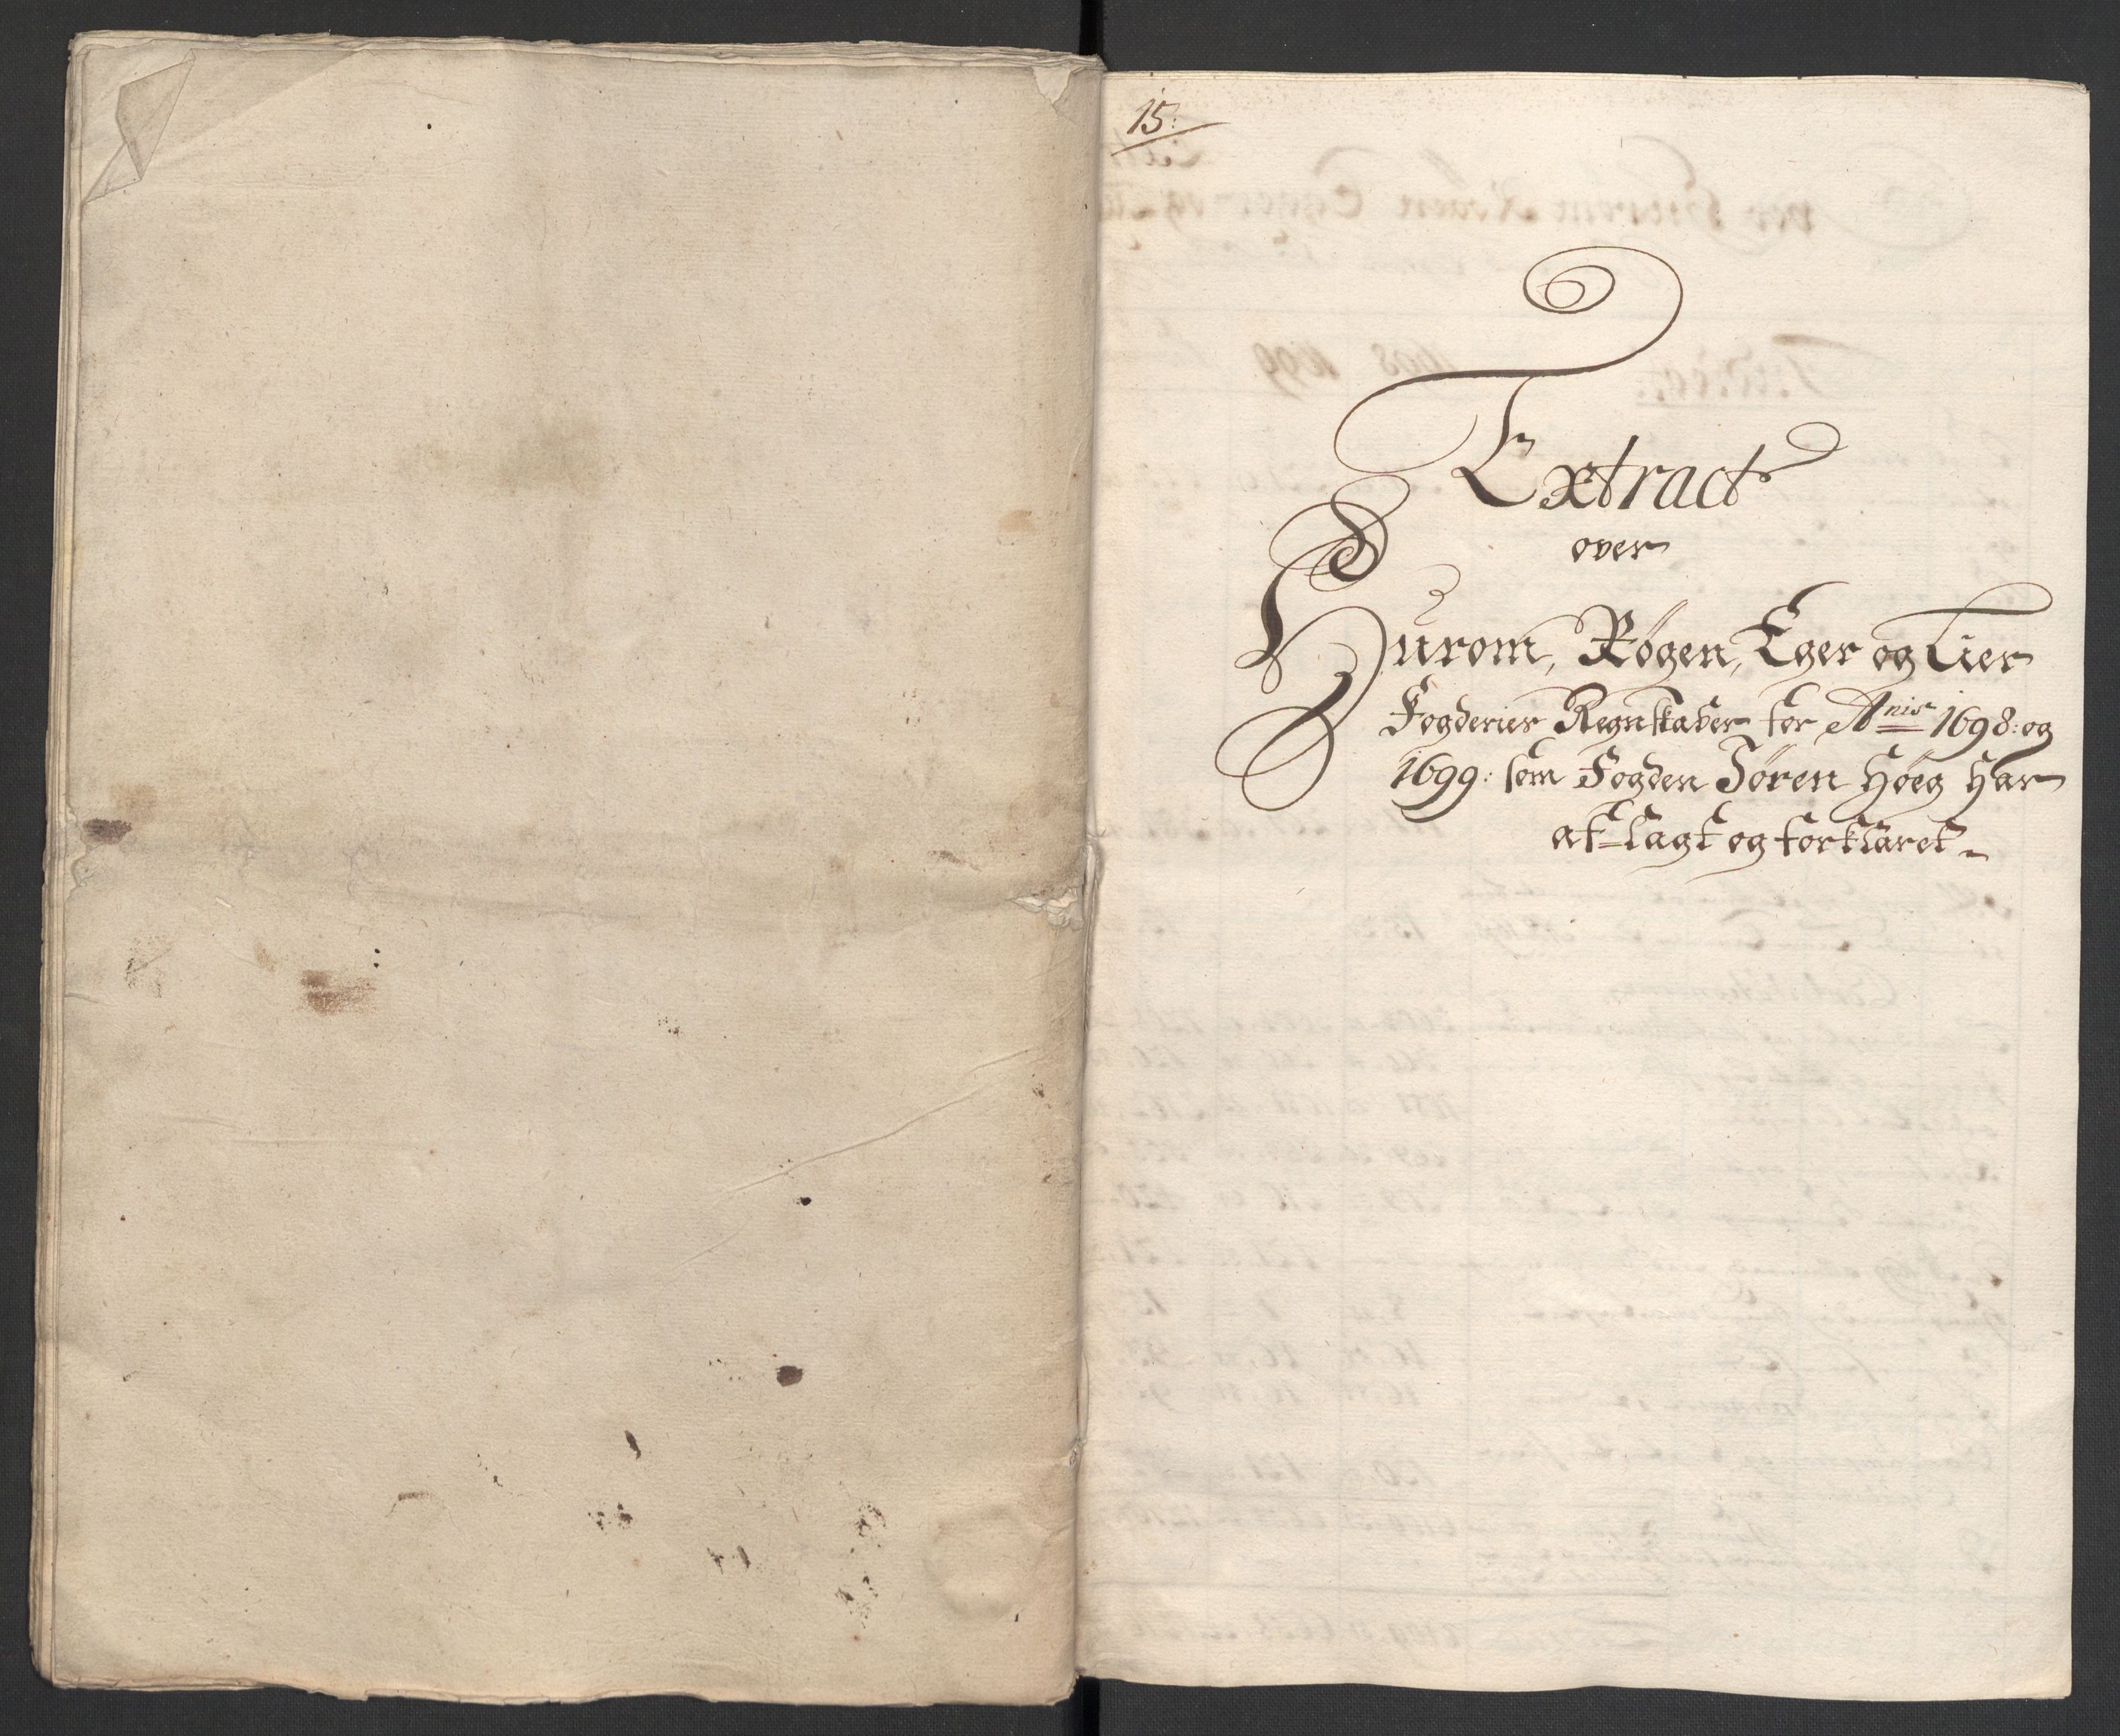 15:
Extract
over
Hurom, Røgen, Eger og Lier
Fogderies Regnskaber for A<sup>nis</sup> 1698: og
1699: som Fogden Søren Høeg har
aflagt og forklaret